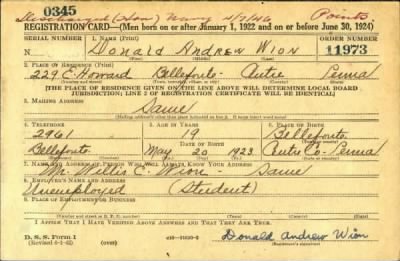 0345
Discharged (Hon) Navy 4/9/46 Points
REGISTRATION CARD—(Men born on or after January 1, 1922 and on or before June 30, 1924)
SERIAL NUMBER 1. NAME (Print) ORDER NUMBER
Donald Andrew Wion 11973
2. PLACE OF RESIDENCE (Print)
229 E. Howard Bellefonte Centre Penna
[THE PLACE OF RESIDENCE GIVEN ON THE LINE ABOVE WILL DETERMINE LOCAL BOARD
JURISDICTION; LINE 2 OF REGISTRATION CERTIFICATE WILL BE IDENTICAL]
3. MAILING ADDRESS
Same
4. TELEPHONE 5. AGE IN YEARS 6. PLACE OF BIRTH
2961 19 Bellefonte
DATE OF BIRTH
Bellefonte May 20 1923 Centre Co - Penna
7. NAME AND ADDRESS OF PERSON WHO WILL ALWAYS KNOW YOUR ADDRESS
Mr. Willis C. Wion - Same
8. EMPLOYER'S NAME AND ADDRESS
Unemployed (Student)
9. PLACE OF EMPLOYMENT OR BUSINESS
I AFFIRM THAT I HAVE VERIFIED ABOVE ANSWERS AND THAT THEY ARE TRUE.
D. S. S. Form 1
(Revised 6-1-42) (over) Donald Andrew Wion
(Registrant's signature)